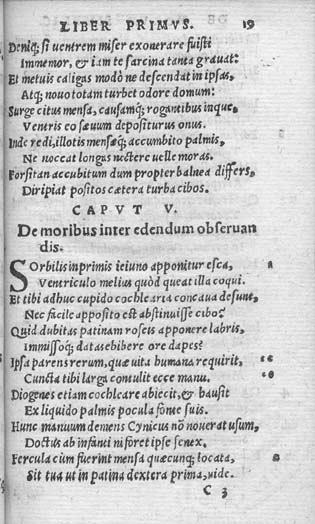 LIBER PRIMVS. 19
Deniq; si uentrem miser exonerare fuisti
Immemor, & iam te sarcina tanta grauat:
Et metuis caligas modò ne descendat in ipsas,
Atq; nouo totam turbet odore domum:
Surge citus mensa, causamq; rogantibus inque,
Ventris eo sæuum depositurus onus.
Inde redi, illotis mensæq; accumbito palmis,
Ne noceat longus nectere uelle moras.
Forsitan accubitum dum propter balnea differs,
Diripiat positos cætera turba cibos.
CAPVT V.
De moribus inter edendum obseruan
dis.
SOrbilis inprimis ieiuno apponitur esca, a
Ventriculo melius quòd queat illa coqui.
Et tibi adhuc cupido cochlearia concaua desunt,
Nec facile apposito est abstinuisse cibo?
Quid dubitas patinam roseis apponere labris,
Immissoq; datas ebibere ore dapes?
Ipsa parens rerum, quæ uita humana requirit,
Cuncta tibi larga contulit ecce manu.
Diogenes etiam cochleare abiecit, & hausit
Ex liquido palmis pocula fonte suis.
Hunc manuum demens Cynicus nõ nouerat usum,
Doctus ab infanti ni foret ipse senex.
Fercula cùm fuerint mensa quæcunq; locata,
Sit tua ut in patina dextera prima, uide.
C 3